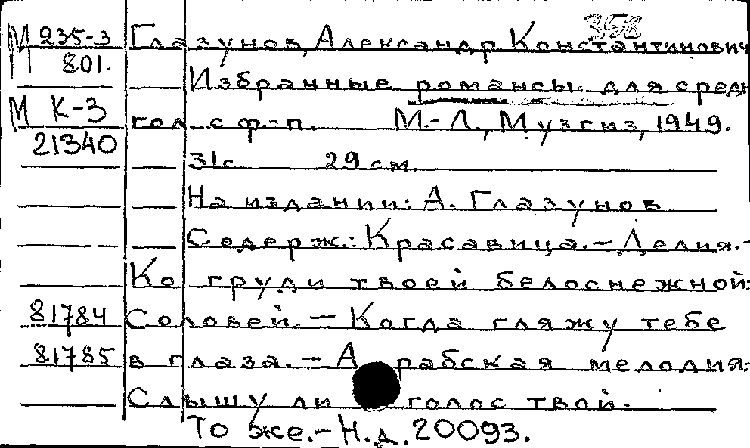 358
М 235-3 Глазунов, Александр Константинович
801.
Избранные романсы для средн
М К-3 гол. с ф.-п. М.-Л., Музгиз, 1949.
21340
31с. 29 см.
На издании: А. Глазунов
Содерж.: Красавица.- Делия.-
Ко груди твоей белоснежной.
81784 Соловей. - Когда гляжу тебе
81785 в глаза. - Арабская мелодия.
Слышу ли голос твой.
То же.- Н.д. 20093.